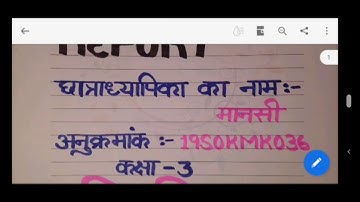 REPORT
1
छात्राध्यापिका का नाम :-
मानसी
अनुक्रमांक :- 19SOKMK036
कक्षा - 3